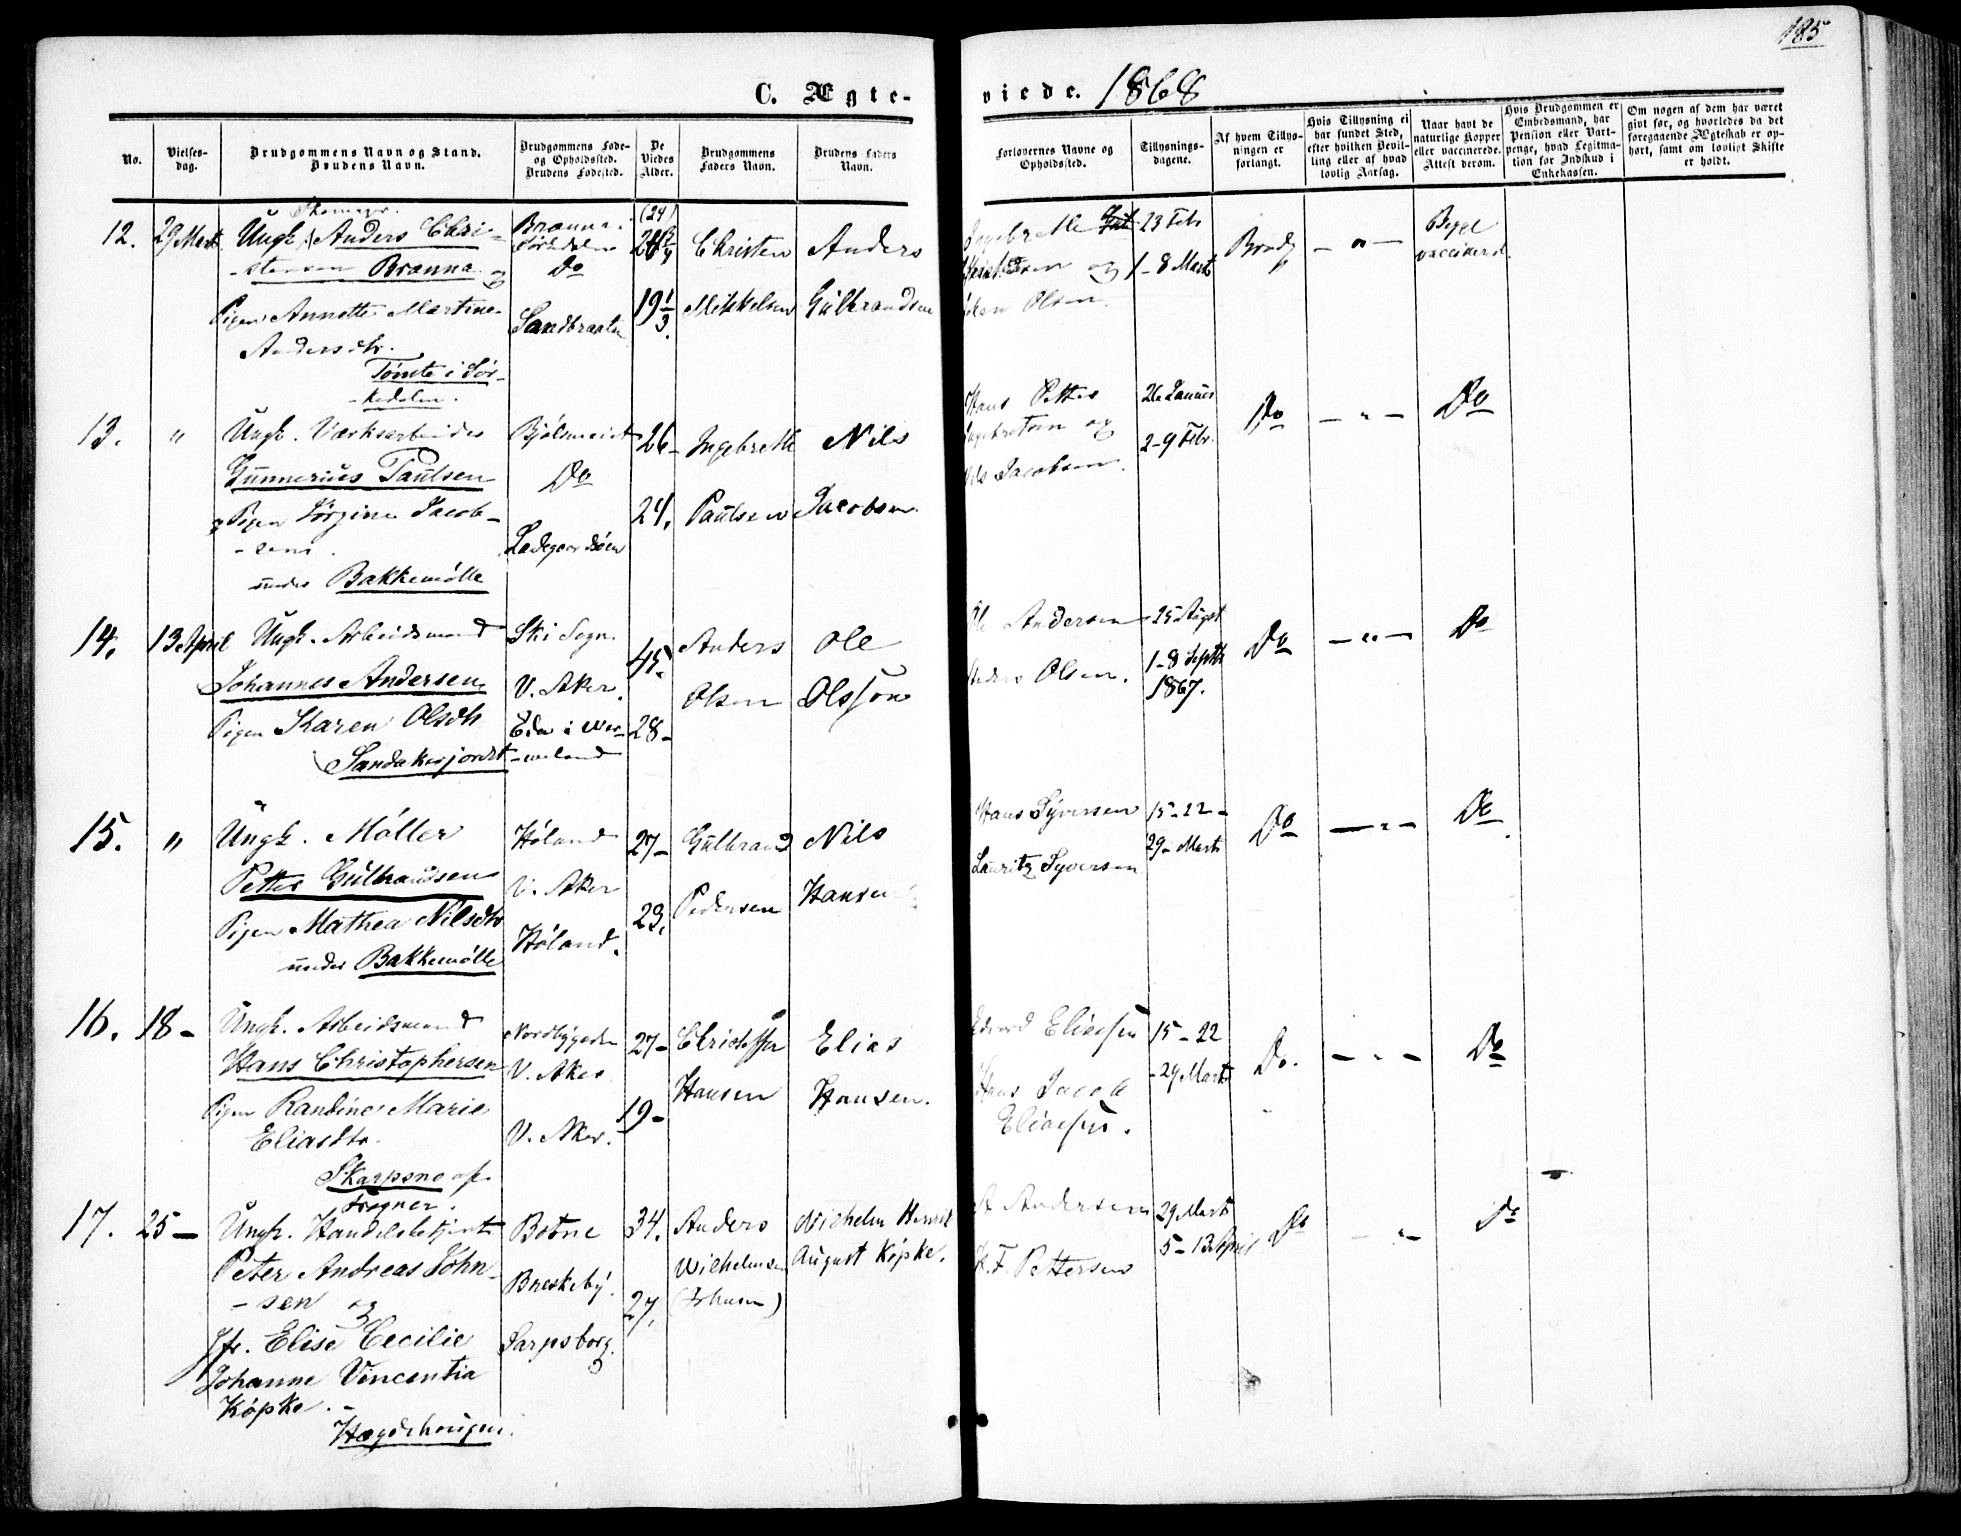 185
C. Ægteviede. 1868
No.
Vielses-
dag.
Brudgommens Navn og Stand.
Brudens Navn.
Brudgommens Føde-
og Opholdssted.
Brudens Fødested.
De
Viedes
Alder.
Brudgommens
Faders Navn.
Brudens Faders
Navn.
Forlovernes Navne og
Opholdssted.
Tillysnings-
dagene.
Af hvem Tillys-
ningen er
forlangt.
Hvis Tillysning ei
har fundet Sted,
efter hvilken Bevil-
ling eller af hvad
lovlig Aarsag.
Naar havt de
naturlige Kopper
eller vaccinerede.
Attest derom.
Hvis Brudgommen er
Embedsmand, har
Pension eller Vart-
penge, hvad Legitima-
tion for Indskud i
Enkekassen.
Om nogen af dem har været
givt før, og hvorledes da det
foregaaende Ægteskab er op-
hørt, samt om lovligt Skifte
er holdt.
12. 29 Marts
Ungk. Anders Chri-
-stensen Brænna og
Pigen Annette Martine
Andersdtr.
Tømte i Sør-
-kedalen.
Brænna i
Sørkedalen
Do
Sandbraaten
(24)
19 1/3
Christen
Mikkelsen
Anders
Gulbrandsen
og
Olsen
23 Febr
1-8 Marts
Brudg
— " —
Begge
vaccinered.
13. "
Ungk. Værksarbeider
Gunnerius Paulsen
& Pigen Jørgine Jacob-
-sen
under Bakkemølle
Bjølsmeiet
Do
Ladegaardsøen
26-
24.
Ingebreth
Paulsen
Nils
Jacobsen
Hans Petter
Ingebretsen og
Nils Jacobsen.
26 Januar
2-9 Febr.
Do
— " —
Do
14. 13 April
Ungk. Arbeidsmand
Johannes Andersen
Pigen Karen Olsdtr
Sandakerjordet
Ski Sogn
V. Aker.
Eda i Wer-
-meland
45.
28-
Anders
Olsen
Ole
Olsson
Ole Andersen
Anders Olsen.
25 August
1-8 Septbr
1867.
Do
— " —
Do
15. "
Ungk. Møller
Petter Gulbrandsen
Pigen Mathea Nilsdtr
under Bakkemølle
Høland
V. Aker
Høland.
27-
23.
Gulbrand
Pedersen
Nils
Hansen
Hans Syversen
Lauritz Syversen
15-22-
29- Marts
Do
— " —
Do
16. 18-
Ungk. Arbeidsmand
Hans Christophersen
Pigen Randine Marie
Eliasdtr.
Skarpsno af
Frogner.
Nordbygden
V. Aker
V. Aker.
27-
19-
Christoffer
Hansen
Elias
Hansen.
Edvard Eliassen
Hans Jacob
Eliassen.
15-22
-29 Marts
Do.
— " —
Do
17. 25-
Ungk. Handelsbetjent
Peter Andreas John-
-sen og
Jfr. Elise Cecilie
Johanne Vincentia
Köpke.
Hægdehougen.
Botne
Briskeby.
Sarpsborg.
34.
27.
Anders
Wilhelmsen
(Johnsen)
Wilhelm Henrik
August Köpke.
A Andersen
K.F. Pettersen
29 Marts
5-13 April
Do
— " —
Do